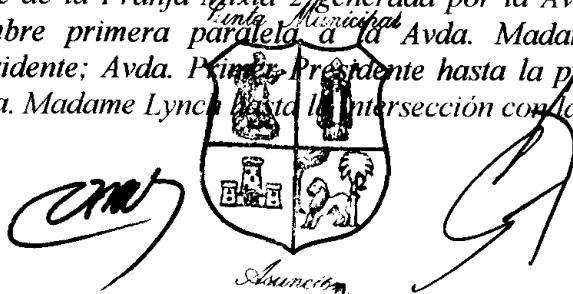 de la Franja Mixta 2, generada por la Av
Junta Municipal
mbre primera paralela a la Avda. Madam
sidente; Avda. Primer Presidente hasta la p
a. Madame Lynch hasta la intersección con la
Asunción